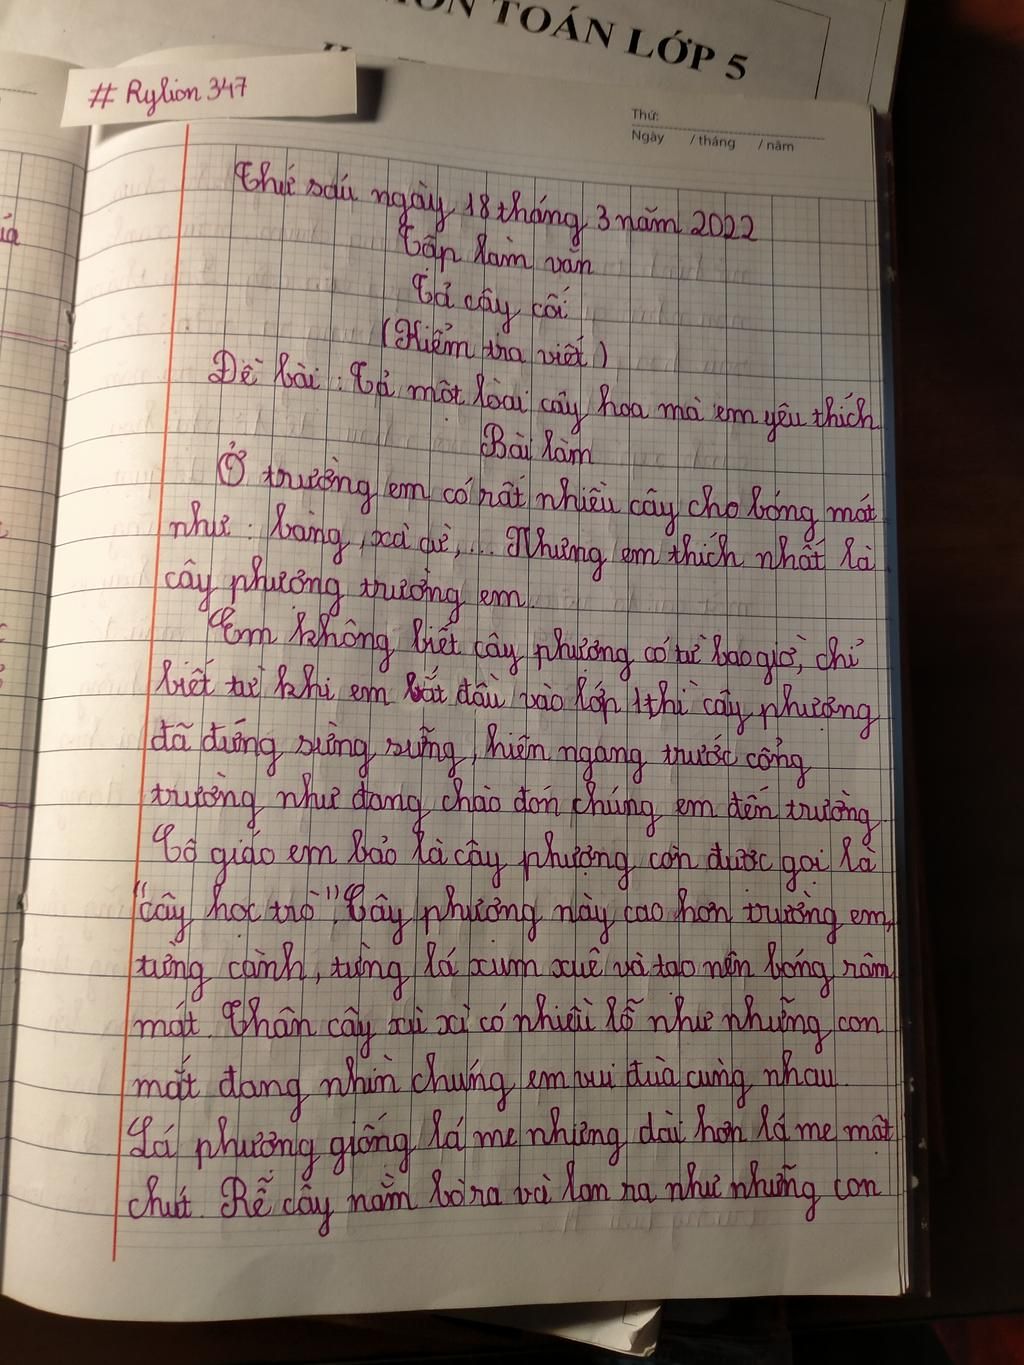 MÔN TOÁN LỚP 5
# Rylion 347
Thứ:
Ngày / tháng / năm
Thứ sáu ngày 18 tháng 3 năm 2022
Tập làm văn
Tả cây cối
(Kiểm tra viết)
Đề bài : Tả một lòai cây hoa mà em yêu thích
Bài làm
Ở trường em có rất nhiều cây cho bóng mát
như : bàng, xà cừ, ... Nhưng em thích nhất là
cây phượng trường em.
Em không biết cây phượng có từ bao giờ, chỉ
biết từ khi em bắt đầu vào lớp 1 thì cây phượng
đã đứng sừng sững, hiên ngang trước cổng
trường như đang chào đón chúng em đến trường.
Cô giáo em bảo là cây phượng còn được gọi là
"cây học trò". Cây phượng này cao hơn trường em,
từng cành, từng lá xum xuê và tạo nên bóng râm
mát. Thân cây xù xì có nhiều lỗ như những con
mắt đang nhìn chúng em vui đùa cùng nhau.
Lá phượng giống lá me nhưng dài hơn lá me một
chút. Rễ cây nằm bò ra và lan ra như những con